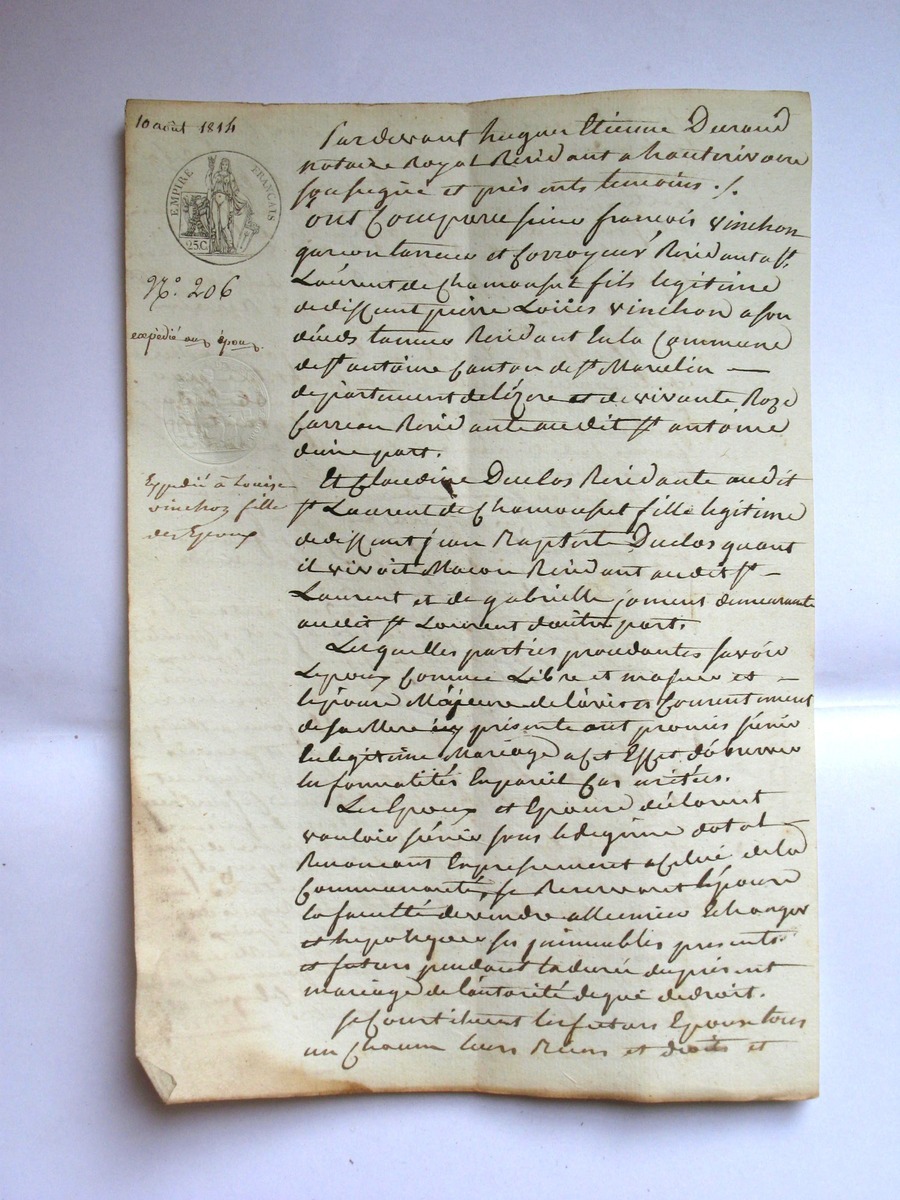 10 août 1814
EMPIRE FRANÇAIS
25 C.
N.º 206
expédié aux époux.
Expedié a Louise
vinchon fille
des Epoux
Pardevant hugues Etienne Durand
notaire Royal Residant a hauterivoire
sousigné et présents temoins ./.
ont Comparu sieur françois vinchon
garcon tanneur et Corroyeur Residant a st
Laurent de Chamousset fils legitime
de deffunt pierre Loüis vinchon a son
décés tanneur Residant en la Commune
de st antoine Canton de st Marcelin —
departement de lizere et de vivante Roze
Carreau Residante audit st antoine
dune part.
Et Claudine Duclos Residante audit
st Laurent de Chamousset fille legitime
de deffunt jean Baptiste Duclos quant
il vivoit Macon Residant audit st —
Laurent et de gabrielle joment demeurante
audit st Laurent dautre part.
Lesquelles parties procedantes savoir
Lepoux Comme Libre et majeur et —
lepouse Majeure de lavis et Consentement
de sa Mere icy présente ont promis s'unir
en legitime Mariage a cet Effet d'observer
les formalités En pareil Cas usitées.
Les Epoux et Epouse déclarent
vouloir s'unir sous le regime dotal
Renoncant Expressement a Celui de la
Communauté, se Reservant lépouse
la faculté de vendre alliener Echanger
et hepotequer ses jmmeubles presents
et futurs pendant la durée du présent
mariage de lautorité de qui de droit.
se Constituent les futurs Epoux tous
un Chacun leurs Biens et droits et